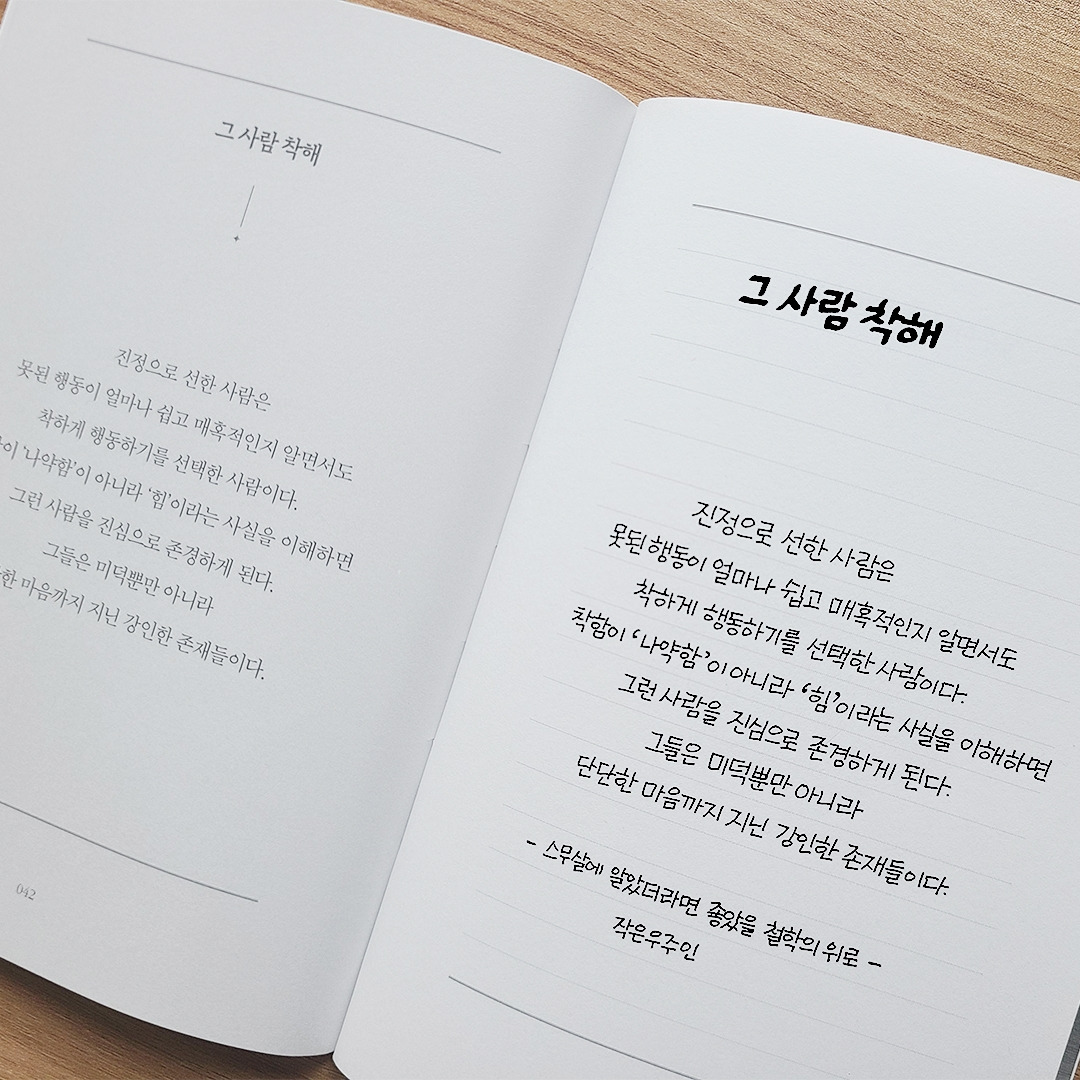 그 사람 착해
진정으로 선한 사람은
못된 행동이 얼마나 쉽고 매혹적인지 알면서도
착하게 행동하기를 선택한 사람이다.
'나약함'이 아니라 '힘'이라는 사실을 이해하면
그런 사람을 진심으로 존경하게 된다.
그들은 미덕뿐만 아니라
마음까지 지닌 강인한 존재들이다.
042
그 사람 착해
진정으로 선한 사람은
못된 행동이 얼마나 쉽고 매혹적인지 알면서도
착하게 행동하기를 선택한 사람이다.
착함이 '나약함'이 아니라 '힘'이라는 사실을 이해하면
그런 사람을 진심으로 존경하게 된다.
그들은 미덕뿐만 아니라
단단한 마음까지 지닌 강인한 존재들이다.
- 스무살에 알았더라면 좋았을 철학의 위로 -
작은우주인